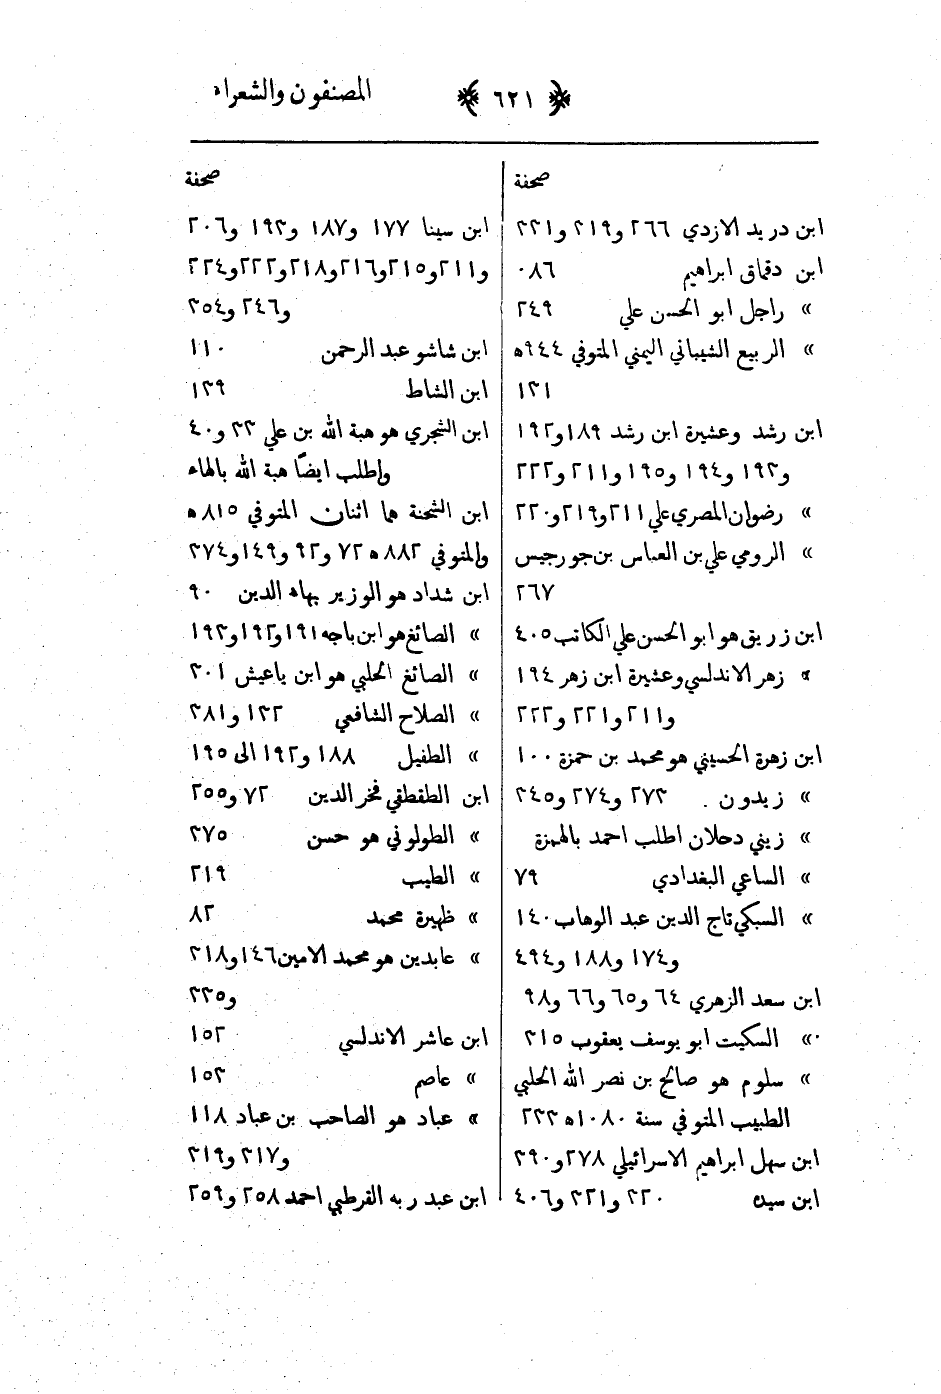 المصنفون والشعراء
﴿ ٦٢١ ﴾
صحفة
ابن دريد الازدي ٢٦٦ و٢١٩ و٢٢١
ابن دقماق ابراهيم ٠٨٦
» راجل ابو الحسن علي ٢٤٩
» الربيع الشيباني اليمني المتوفي ٩٤٤ه
١٢١
ابن رشد وعشيرة ابن رشد ١٨٩ و١٩٢
و١٩٣ و١٩٤ و١٩٥ و٢١١ و٢٢٢
» رضوان المصري علي ٢١١ و٢١٩ و٢٢٠
» الرومي علي بن العباس بن جورجيس
٢٦٧
ابن زريق هو ابو الحسن علي الكاتب ٤٠٥
» زهر الاندلسي وعشيرة ابن زهر ١٩٤
و٢١١ و٢٢١ و٢٢٢
ابن زهرة الحسيني هو محمد بن حمزة ١٠٠
» زيدون ٢٧٢ و٢٧٤ و٣٤٥
» زيني دحلان اطلب احمد بالهمزة
» الساعي البغدادي ٧٩
» السبكي تاج الدين عبد الوهاب ١٤٠
و١٧٤ و١٨٨ و٤٩٤
ابن سعد الزهري ٦٤ و٦٥ و٦٦ و٩٨
» السكيت ابو يوسف يعقوب ٣١٥
» سلوم هو صالح بن نصر الله الحلبي
الطبيب المتوفي سنة ١٠٨٠ه ٢٣٣
ابن سهل ابراهيم الاسرائيلي ٢٧٨ و٣٩٠
ابن سيده ٢٢٠ و٢٢١ و٤٠٦
صحفة
ابن سينا ١٧٧ و١٨٧ و١٩٣ و٢٠٦
و٢١١ و٢١٥ و٢١٦ و٢١٨ و٢٢٢ و٢٢٤
و٢٤٦ و٣٥٤
ابن شاشو عبد الرحمن ١١٠
ابن الشاط ١٣٩
ابن الشجري هو هبة الله بن علي ٣٣ و٤٠
واطلب ايضًا هبة الله بالهاء
ابن الشحنة هما اثنان المتوفي ٨١٥ه
والمتوفي ٨٨٢ه ٧٢ و٩٢ و١٤٩ و٣٧٤
ابن شداد هو الوزير بهاء الدين ٩٠
» الصائغ هو ابن باجه ١٩١ و١٩٢ و١٩٣
» الصائغ الحلبي هو ابن ياعيش ٣٠١
» الصلاح الشافعي ١٣٢ و٣٨١
» الطفيل ١٨٨ و١٩٢ الى ١٩٥
ابن الطقطقي فخر الدين ٧٢ و٢٥٥
» الطولوني هو حسن ٣٧٥
» الطيب ٢١٩
» ظهيرة محمد ٨٢
» عابدين هو محمد الامين ١٤٦ و٢١٨
و٣٣٥
ابن عاشر الاندلسي ١٥٢
» عاصم ١٥٣
» عباد هو الصاحب بن عباد ١١٨
و٢١٧ و٢١٩
ابن عبد ربه القرطبي احمد ٢٥٨ و٢٥٩